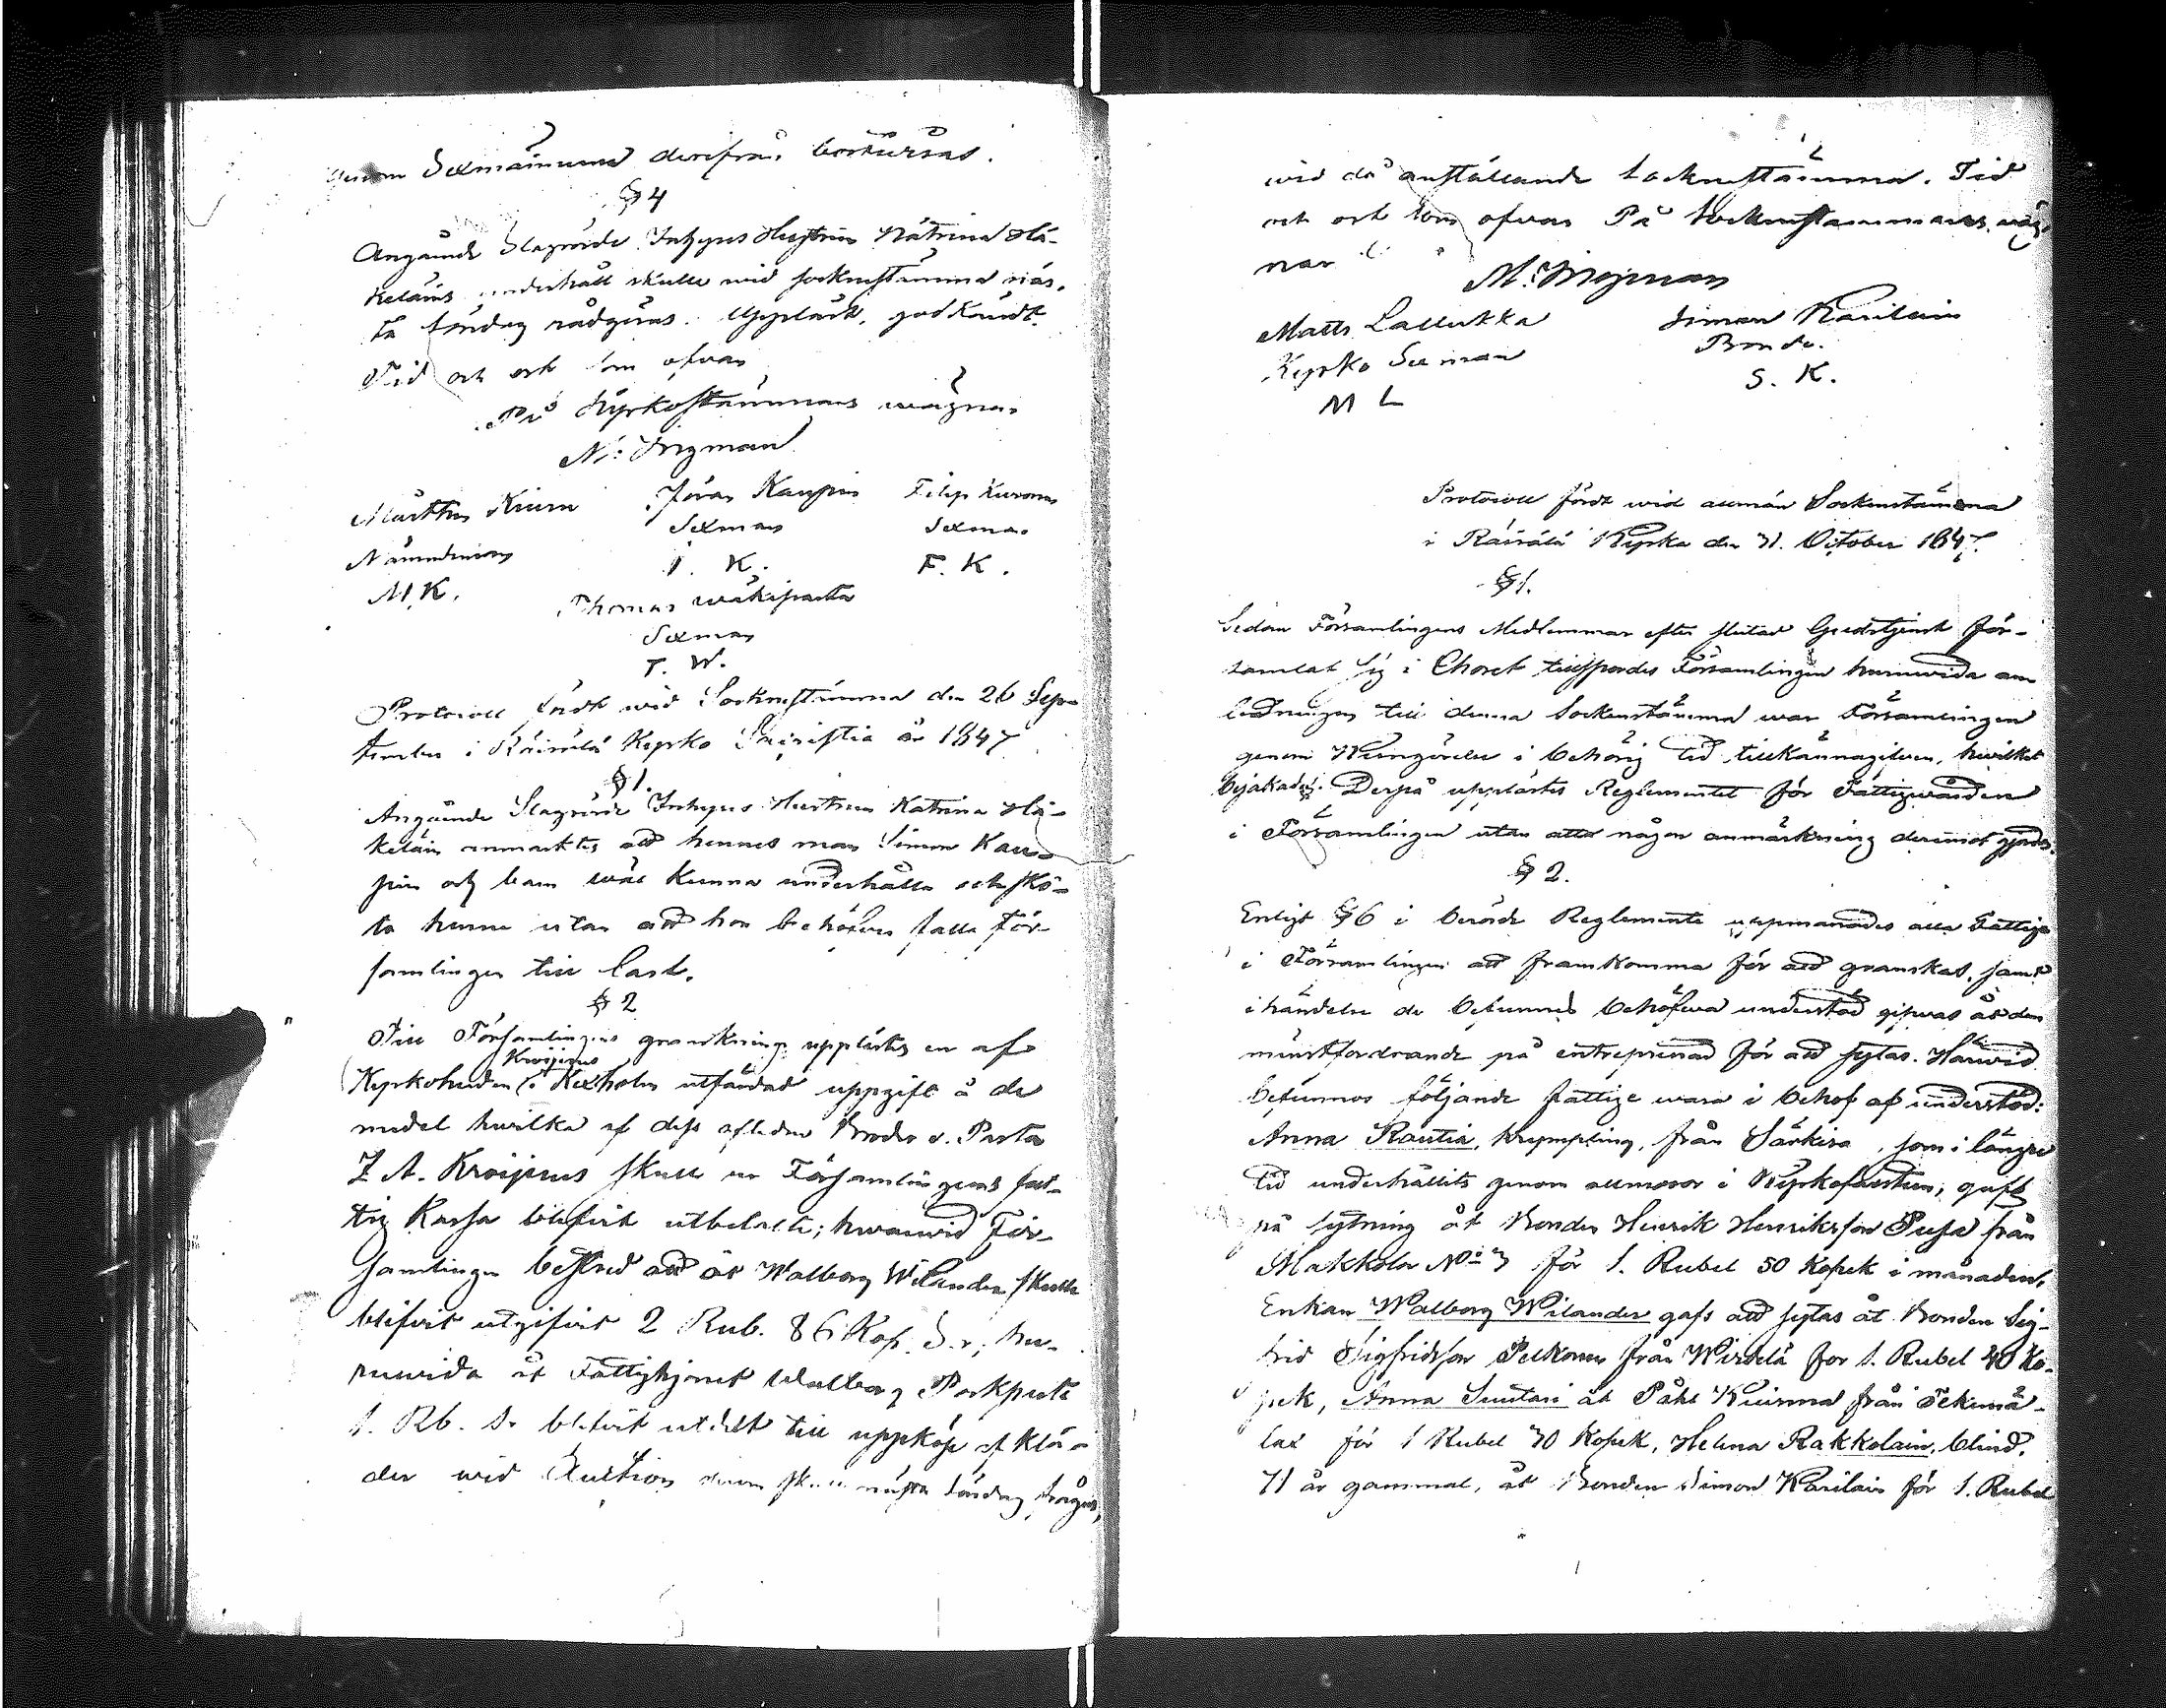 genom Sexmännerna derifrån bortvisas.
§ 4
Angående Slagrörde Inhyses Hustrun Katrina Hä-
keläins underhåll skulle wid sockenstämma näs-
ta Söndag rådgöras. Uppläst, godkändt.
Tid och ort som ofvan
På Kyrkostämmans wägnar
N: Ingman
Mårthen Kiuru Jöran Kaupin Filip Kuronen
Nämndeman Sexman Sexman
M. K. J. K. F. K.
Thomas wäkiparta
Sexman
T. W.
Protocoll fördt wid Sockenstämma den 26 Sep-
tember i Räisälä Kyrko Sacristia år 1847
§ 1.
Angående Slagrörde Inhyses Hustrun Katrina Hä-
keläin anmärktes att hennes man Simon Kau-
pin och barn wäl kunna underhålla och skö-
ta henne utan att hon behöfver falla För-
samlingen till last.
§ 2
Till Församlingens granskning upplästes en af
Kyrkoherden Kroijerus i Kexholm utfärdad uppgift å de
medel hwilka af dess afledne Broder v. Pastor
Z A. Kroijerus skulle ur Församlingens fat-
tig Kassa blifvit utbetalte; hwarwid För-
samlingen bestred att åt Walborg Wilander skulle
blifvit utgifvit 2 Rub. 86 Kop. S.r; hu-
ruwida åt Fattighjonet Walborg Parkpelti
1. Rb. Sr blifvit utdelt till uppköp af Klä-
der wid Auction derom skulle nästa Söndag frågas,
wid då anställande Sockenstämma. Tid
och ort som ofvan På Sockenstämmans wäg-
nar
N: Ingman
Matts Lallukka Simon Karilain
Kyrko Sexman Bonde.
M L S. K.
Protocoll fördt wid allmän Sockenstämma
i Räisälä Kyrka den 31. October 1847.
§ 1.
Sedan Församlingens Medlemmar efter slutad Gudstjenst För-
samlat sig i Choret tillspordes Församlingen huruwida an-
ledningen till denna Sockenstämma war Församlingen
genom Kungörelse i behörig tid tillkännagifven, hwilket
bejakades. Derpå upplästes Reglementet för Fattigwården
i Församlingen utan att någon anmärkning deremot gjordes.
§ 2.
Enligt § 6 i berörde Reglemente uppmanades alla Fattige
i Församlingen att framkomma för att granskas, samt
i händelse de befunnes behöfva understöd gifvas åt den
minstfordrande på entreprenad för att sytas. Härwid
befunnos följande fattige wara i behof af understöd:
Anna Rautia, Krympling, från Särkisa, som i längre
tid underhållits genom allmosor i Kyrkofarstun, gafs
på sytning åt Bonden Henrik Henriksson Pusa från
Makkola No 3 för 1. Rubel 50 Kopek i månaden.
Enkan Walborg Wilander gafs att sytas åt Bonden Sig-
frid Sigfridsson Pelkonen från Wirdelä for 1. Rubel 40 Ko-
pek, Anna Suutari åt Påhl Kiurma från Tekumä-
lax för 1 Rubel 70 Kopek, Helena Rakkolain, blind,
71 år gammal, åt Bonden Simon Karilain för 1. Rubel